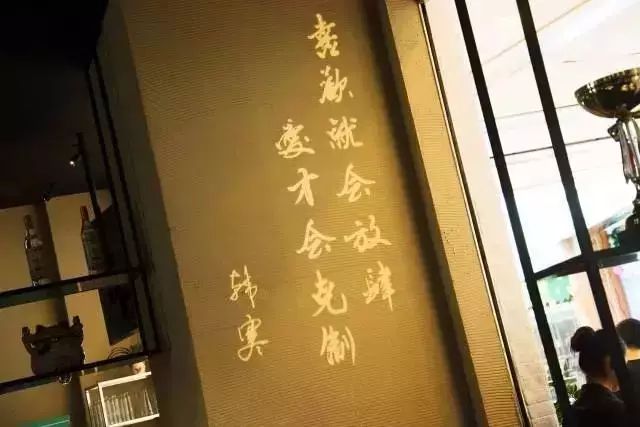 喜歡就会放肆
爱才会克制
韩寒